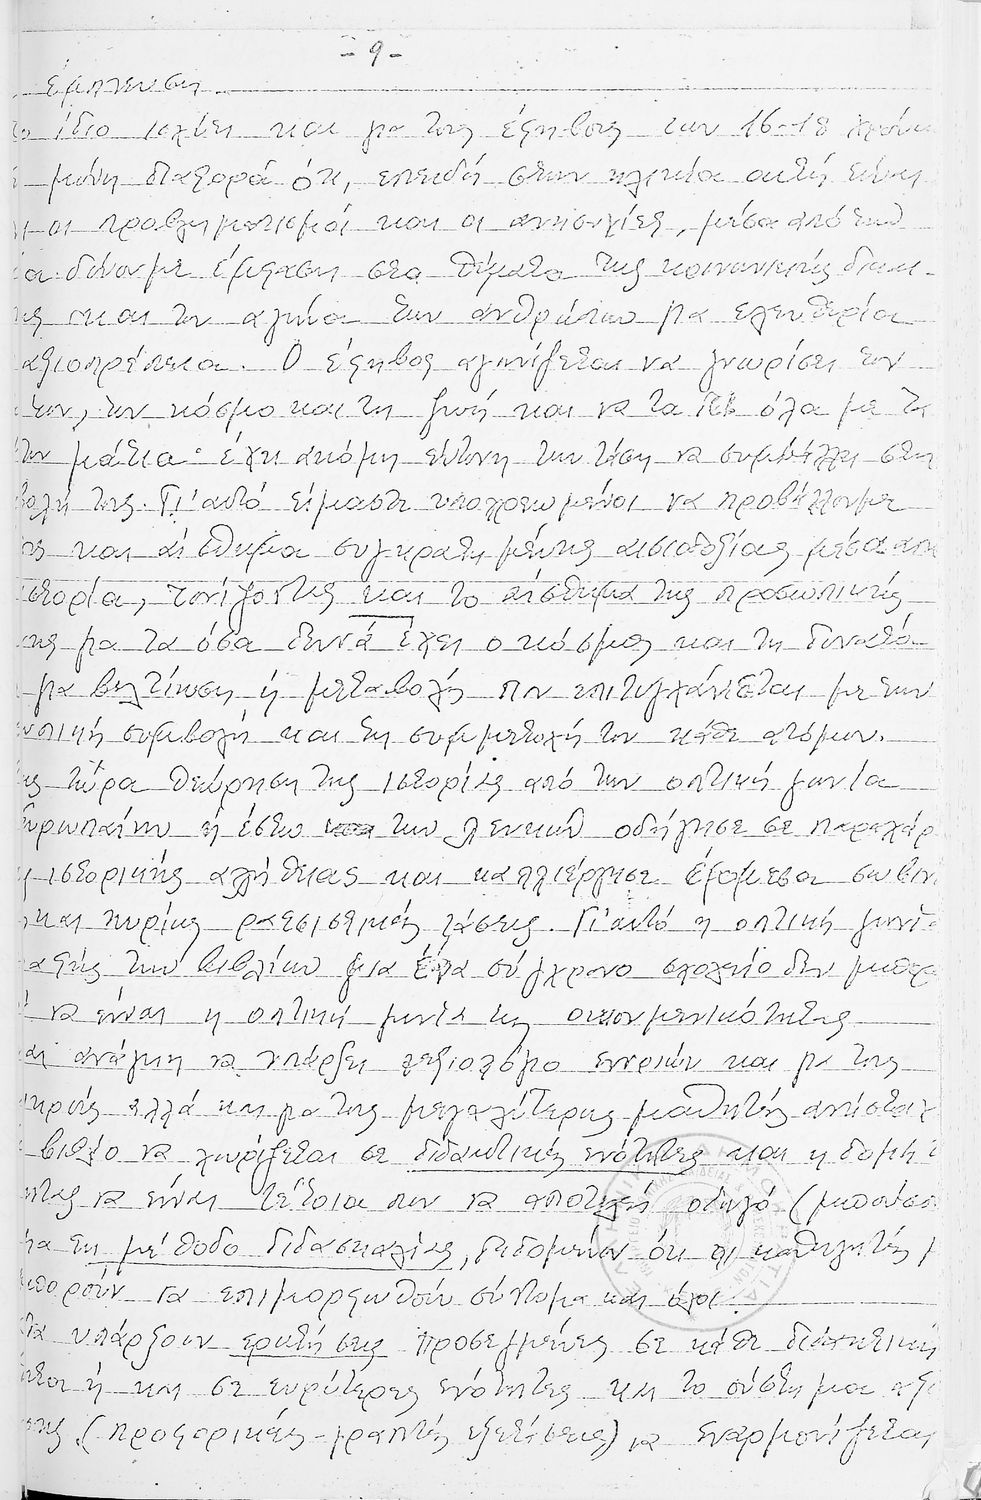 - 9 -
έμπνευση
ίδιο ισχύει και για τους έφηβους των 16-18 χρόνω
μόνη διαφορά ότι, επειδή στην ηλικία αυτή είναι
οι προβληματισμοί και οι ανησυχίες, μέσα από την
δίνουμε έμφαση στα θέματα της κοινωνικής δικαι-
και τον αγώνα των ανθρώπων για ελευθερία
αξιοπρέπεια. Ο έφηβος αγωνίζεται να γνωρίσει τον
του, τον κόσμο και τη ζωή και να τα δει όλα με τα
μάτια· έχει ακόμη έντονη την τάση να συμβάλλει στη
βολή της. Γι' αυτό είμαστε υποχρεωμένοι να προβάλλουμε
και αίσθημα συγκρατημένης αισιοδοξίας μέσα απ
ιστορία, τονίζοντας και το αίσθημα της προσωπικής
για τα όσα δεινά έχει ο κόσμος και τη δυνατό-
για βελτίωση ή μεταβολή που επιτυγχάνεται με την
συμβολή και τη συμμετοχή του κάθε ατόμου.
τώρα θεώρηση της ιστορίας από την οπτική γωνία
Ευρωπαίων ή έστω των λευκών οδήγησε σε παραχάρ
ιστορικής αλήθειας και καλλιέργησε
και κυρίως ρατσιστικές τάσεις. Γι' αυτό η οπτική γωνία
των βιβλίων για ένα σύγχρονο σχολείο δεν μπορ
να είναι η οπτική γωνία της οικουμενικότητας
ανάγκη να υπάρξει λεξιλόγιο εννοιών και για τους
μικρούς αλλά και για τους μεγαλύτερους μαθητές
βιβλίο να χωρίζεται σε διδακτικές ενότητες και η δομή τ
να είναι τέτοια που να αποτελεί οδηγό (μπούσο
για τη μέθοδο διδασκαλίας, δεδομένου ότι οι καθηγητές
μπορούν να επιμορφωθούν σύντομα και όλοι.
Να υπάρξουν ερωτήσεις προσεγμένες σε κάθε διδακτική
ή και σε ευρύτερες ενότητες και το σύστημα αξι
(προφορικές - γραπτές εξετάσεις) να εναρμονίζεται